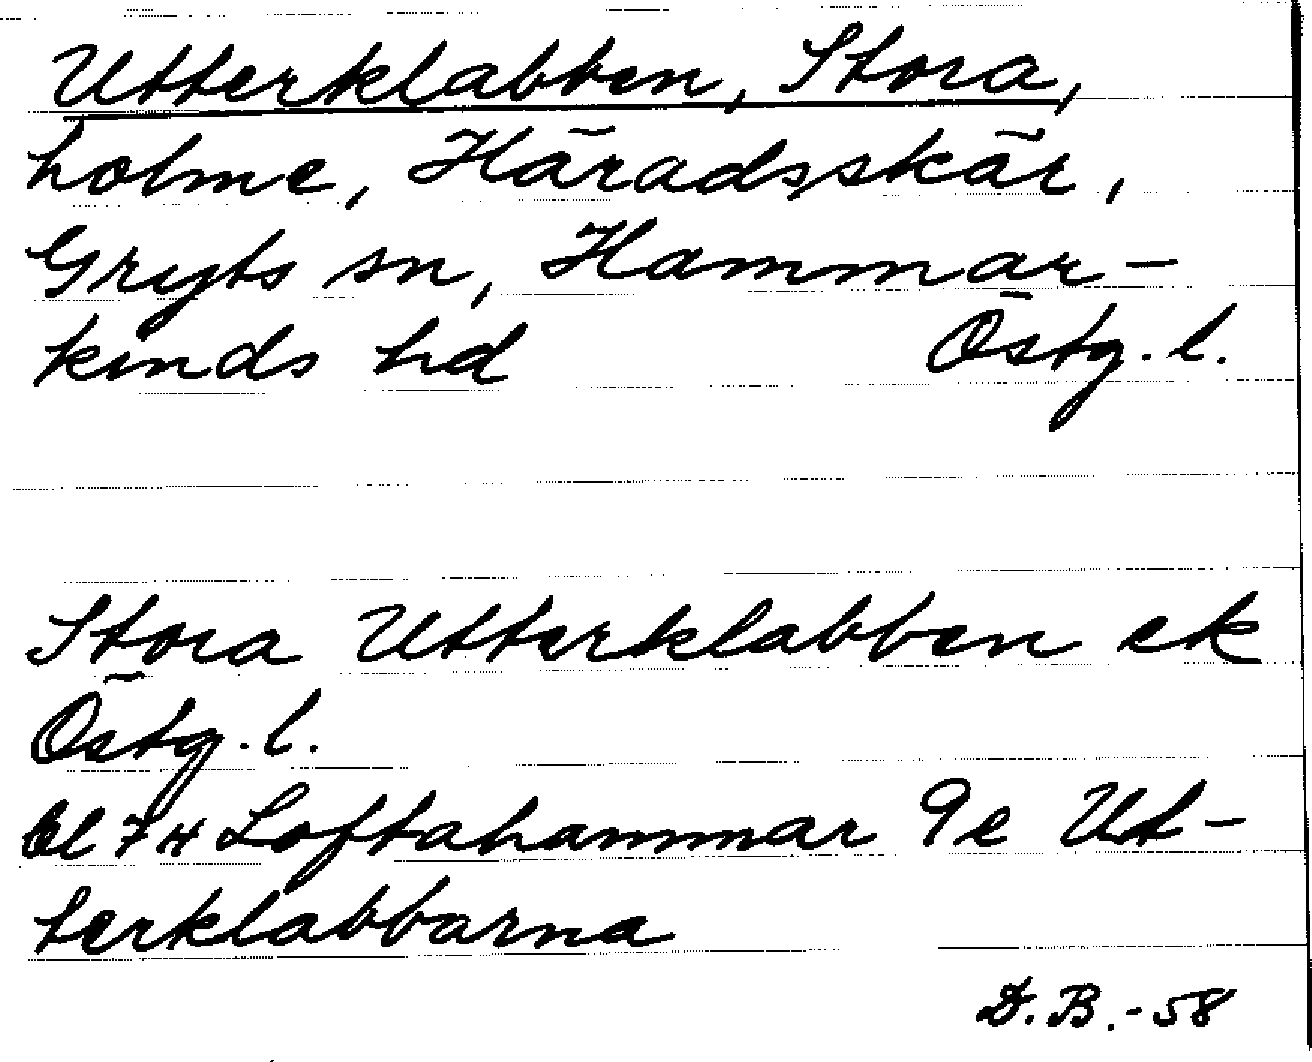 Utterklabben, Stora,
holme, Häradsskär,
Gryts sn, Hammar-
kinds hd Östg. l.
Stora Utterklabben ek
Östg. l.
bl 74 Loftahammar 9e Ut-
terklabbarna
D. B. -58